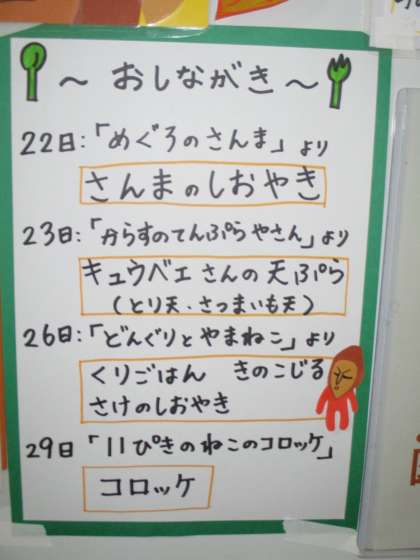 ～おしながき～
22日:「めぐろのさんま」より
さんまのしおやき
23日:「からすのてんぷらやさん」より
キュウベエさんの天ぷら
(とり天、さつまいも天)
26日:「どんぐりとやまねこ」より
くりごはん きのこじる
さけのしおやき
29日「11ぴきのねこのコロッケ」
コロッケ